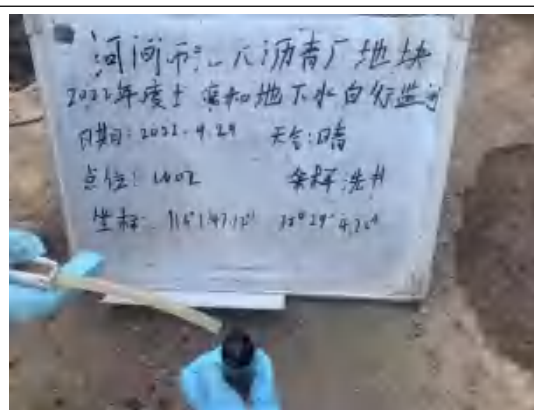 河间市 沥青厂地块
2022年度土壤和地下水自行监测
日期: 2022.4.29 天气: 晴
点位: W02 采样: 洗井
坐标: 116°1'47.12" 38°29'